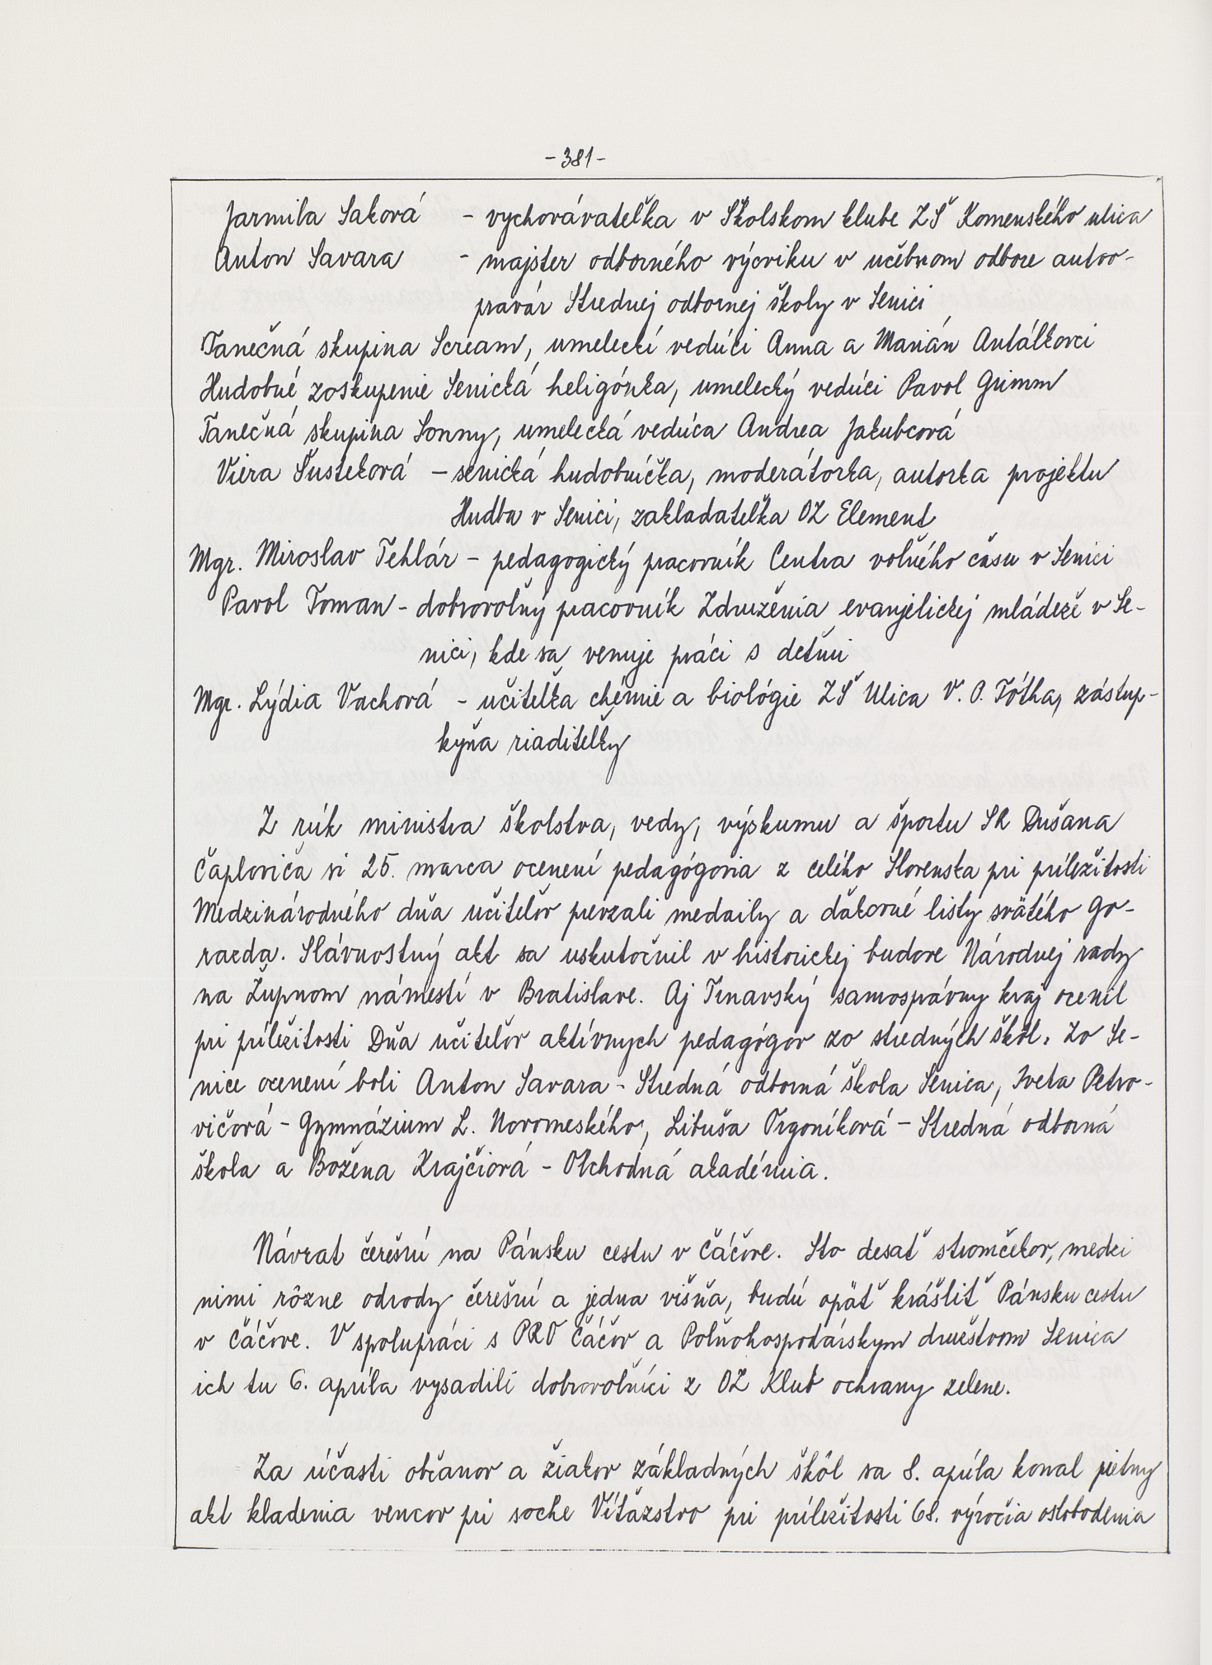 -381-
Jarmila Saková - vychovávateľka v Školskom klube ZŠ Komenského ulica
Anton Savara - majster odborného výcviku v učebnom odbore autoo-
pravár Strednej odbornej školy v Senici
Tanečná skupina Scream, umeleckí vedúci Anna a Marián Antálkovci
Hudobné zoskupenie Senická heligónka, umelecký vedúci Pavol Grimm
Tanečná skupina Sonny, umelecká vedúca Andrea Jakubcová
Viera Šusteková - senická hudobníčka, moderátorka, autorka projektu
Hudba v Senici, zakladateľka OZ Element
Mgr. Miroslav Tehlár - pedagogický pracovník Centra voľného času v Senici
Pavol Toman - dobrovoľný pracovník Združenia evanjelickej mládeže v Se-
nici, kde sa venuje práci s deťmi
Mgr. Lýdia Vachová - učiteľka chémie a biológie ZŠ Ulica V. P. Tótha, zástup-
kyňa riaditeľky
Z rúk ministra školstva, vedy, výskumu a športu SR Dušana
Čaploviča si 25. marca ocenení pedagógovia z celého Slovenska pri príležitosti
Medzinárodného dňa učiteľov prevzali medaily a ďakovné listy svätého Go-
razda. Slávnostný akt sa uskutočnil v historickej budove Národnej rady
na Župnom námestí v Bratislave. Aj Trnavský samosprávny kraj ocenil
pri príležitosti Dňa učiteľov aktívnych pedagógov zo stredných škôl. Zo Se-
nice ocenení boli Anton Savara - Stredná odborná škola Senica, Iveta Petro-
vičová - Gymnázium L. Novomeského, Libuša Trgoníková - Stredná odborná
škola a Božena Krajčiová - Obchodná akadémia.
Návrat čerešní na Pánsku cestu v Čáčove. Sto desať stromčekov, medzi
nimi rôzne odrody čerešní a jedna višňa, budú opäť krášliť Pánsku cestu
v Čáčove. V spolupráci s PRO Čáčov a Poľnohospodárskym družstvom Senica
ich tu 6. apríla vysadili dobrovoľníci z OZ Klub ochrany zelene.
Za účasti občanov a žiakov základných škôl sa 8. apríla konal pietny
akt kladenia vencov pri soche Víťazstvo pri príležitosti 68. výročia oslobodenia